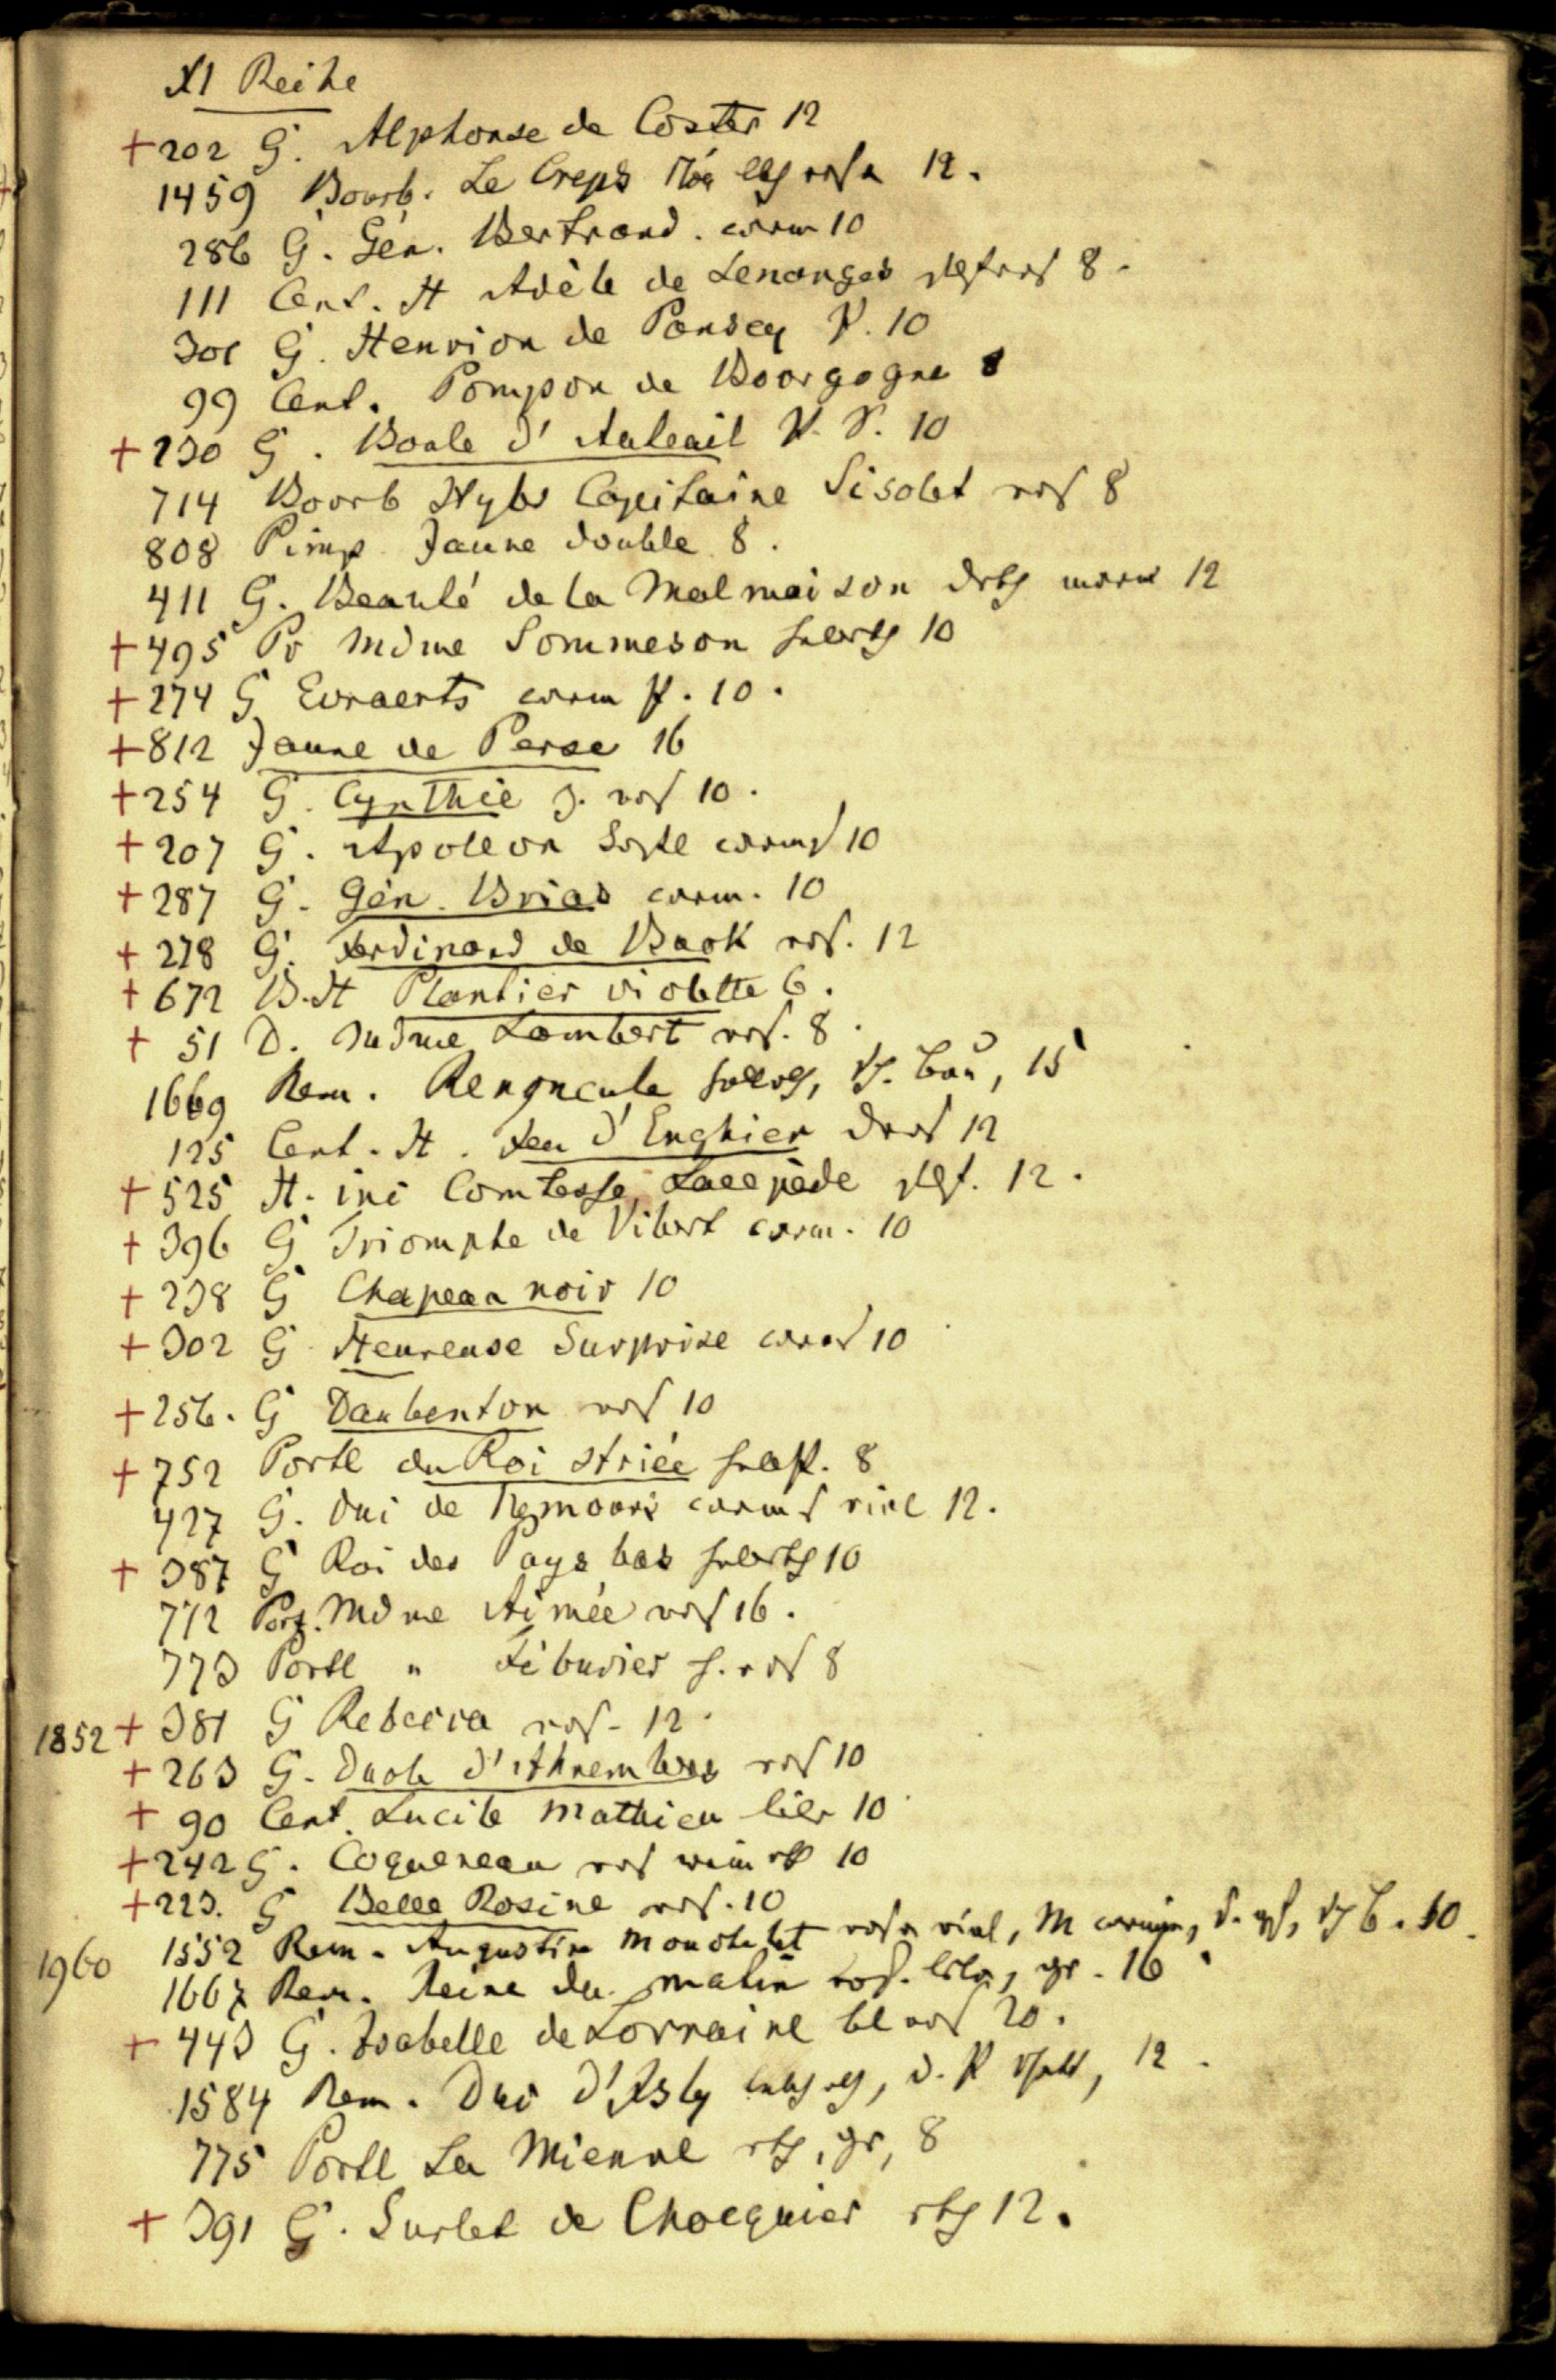 XI Reihe
+202 G. Alphonse de Coster 12
1459 Bourb. Le Creps rosa 12.
286 G. Gén. Bertrand. carm 10
111 Cent. H Adèle de Senanges 8.
301 G. Henrion de Pansey P. 10
99 Cent. Pompon de Bourgogne 8
+230 G. Boule d'Auteuil V. P. 10
714 Bourb Hybr Capitaine Sisolet ros 8
808 Pimp Jaune double 8.
411 G. Beauté de la Malmaison 12
+495 Pr Mdme Sommeson 10
+274 G Evraerts carm P. 10.
+812 Jaune de Perse 16
+254 G. Cynthie ros 10.
+207 G. Apoleon 10
+287 G. Gén. Brias carm. 10
+278 G. Ferdinand de Buck ros. 12
+672 B.H Plantier violette 6.
+ 51 D. Mdme Lambert ros. 8.
1669 Rem. Renoncule 15
125 Cent. H. Feu d'Enghien 12
+525 H. ind Comtesse Lacepède 12.
+396 G Triomphe de Vibert carm. 10
+238 G Chapeau noir 10
+302 G Heureuse Surprise 10
+256. G Daubenton ros 10
+752 Portl du Roi striée 8
427 G. Duc de Nemours 12.
+387 G Roi des Pays bas 10
772 Port. Mdme Aimée ros 16.
773 Portl " Féburier ros 8
1852 + 381 G Rebecca ros. 12.
+263 G. Duc d'Ahremberg ros 10
+ 90 Cent. Lucile Mathieu 10
+242 G. Coquereau ros 10
+223. G Belle Rosine ros. 10
1552 Rem. Augustine Mouchelet rosa viol, M 10.
1960 1667 Rem. Reine du matin ros. lila, gr. 16
+ 443 G. Isabelle de Lorraine bl ros 20.
1584 Rem. Duc d'Isly 12.
775 Portl La Mienne gr, 8
+ 391 G. Surlet de Chocquier 12.